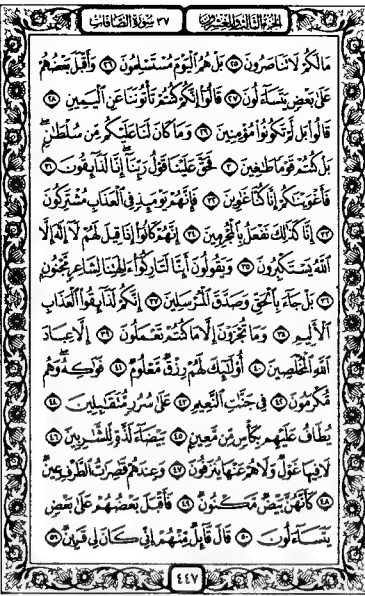 الجزء الثالث والعشرون ٣٧ سورة الصافات
مَالَكُمْ لَا تَنَاصَرُونَ ٢٥ بَلْ هُمُ الْيَوْمَ مُسْتَسْلِمُونَ ٢٦ وَأَقْبَلَ بَعْضُهُمْ
عَلَىٰ بَعْضٍ يَتَسَاءَلُونَ ٢٧ قَالُوا إِنَّكُمْ كُنتُمْ تَأْتُونَنَا عَنِ الْيَمِينِ ٢٨
قَالُوا بَل لَّمْ تَكُونُوا مُؤْمِنِينَ ٢٩ وَمَا كَانَ لَنَا عَلَيْكُم مِّن سُلْطَانٍ
بَلْ كُنتُمْ قَوْمًا طَاغِينَ ٣٠ فَحَقَّ عَلَيْنَا قَوْلُ رَبِّنَا إِنَّا لَذَائِقُونَ ٣١
فَأَغْوَيْنَاكُمْ إِنَّا كُنَّا غَاوِينَ ٣٢ فَإِنَّهُمْ يَوْمَئِذٍ فِي الْعَذَابِ مُشْتَرِكُونَ
٣٣ إِنَّا كَذَٰلِكَ نَفْعَلُ بِالْمُجْرِمِينَ ٣٤ إِنَّهُمْ كَانُوا إِذَا قِيلَ لَهُمْ لَا إِلَٰهَ إِلَّا
اللَّهُ يَسْتَكْبِرُونَ ٣٥ وَيَقُولُونَ أَئِنَّا لَتَارِكُوا آلِهَتِنَا لِشَاعِرٍ مَّجْنُونٍ
٣٦ بَلْ جَاءَ بِالْحَقِّ وَصَدَّقَ الْمُرْسَلِينَ ٣٧ إِنَّكُمْ لَذَائِقُوا الْعَذَابِ
الْأَلِيمِ ٣٨ وَمَا تُجْزَوْنَ إِلَّا مَا كُنتُمْ تَعْمَلُونَ ٣٩ إِلَّا عِبَادَ
اللَّهِ الْمُخْلَصِينَ ٤٠ أُولَٰئِكَ لَهُمْ رِزْقٌ مَّعْلُومٌ ٤١ فَوَاكِهُ وَهُم
مُّكْرَمُونَ ٤٢ فِي جَنَّاتِ النَّعِيمِ ٤٣ عَلَىٰ سُرُرٍ مُّتَقَابِلِينَ ٤٤
يُطَافُ عَلَيْهِم بِكَأْسٍ مِّن مَّعِينٍ ٤٥ بَيْضَاءَ لَذَّةٍ لِّلشَّارِبِينَ ٤٦
لَا فِيهَا غَوْلٌ وَلَا هُمْ عَنْهَا يُنزَفُونَ ٤٧ وَعِندَهُمْ قَاصِرَاتُ الطَّرْفِ عِينٌ
٤٨ كَأَنَّهُنَّ بَيْضٌ مَّكْنُونٌ ٤٩ فَأَقْبَلَ بَعْضُهُمْ عَلَىٰ بَعْضٍ
يَتَسَاءَلُونَ ٥٠ قَالَ قَائِلٌ مِّنْهُمْ إِنِّي كَانَ لِي قَرِينٌ ٥١
٤٤٧